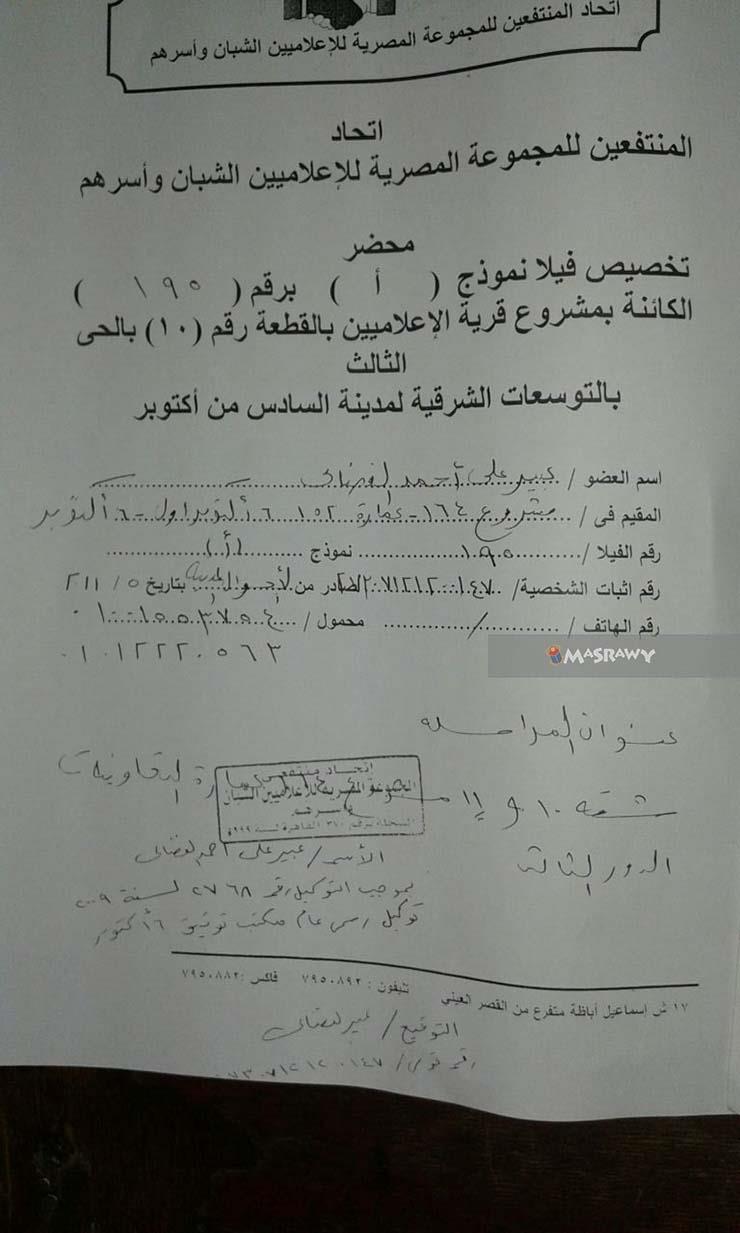 اتحاد المنتفعين للمجموعة المصرية للإعلاميين الشبان وأسرهم
اتحاد
المنتفعين للمجموعة المصرية للإعلاميين الشبان وأسرهم
محضر
تخصيص فيلا نموذج ( أ ) برقم ( ١٩٥ )
الكائنة بمشروع قرية الإعلاميين بالقطعة رقم (١٠) بالحى
الثالث
بالتوسعات الشرقية لمدينة السادس من أكتوبر
اسم العضو / عبير على أحمد
المقيم فى / مشروع ١٦٤ - عمارة ١٥٢ ٦ أكتوبر اول - ٦ أكتوبر
رقم الفيلا / ١٩٥ نموذج (أ)
رقم اثبات الشخصية / صادر من بتاريخ
رقم الهاتف / / محمول /
٠١٠١٢٢٢٠٥٦٣
MASRAWY
عنوان المراسله
شقه ١٠ و ١١ التعاونيات
اتحاد منتفعى
المجموعة المصرية للاعلاميين الشبان
وأسرهم
الدور الثالث
الأسم / عبير على احمد
بموجب التوكيل رقم ٢٧٦٨ لسنة ٢٠٠٩
توكيل رسمى عام مكتب توثيق ٦ أكتوبر
١٧ ش إسماعيل أباظة متفرع من القصر العيني تليفون : ٧٩٥٠٨٩٢ فاكس : ٧٩٥٠٨٨٢
التوقيع / عبير
رقم قومى /